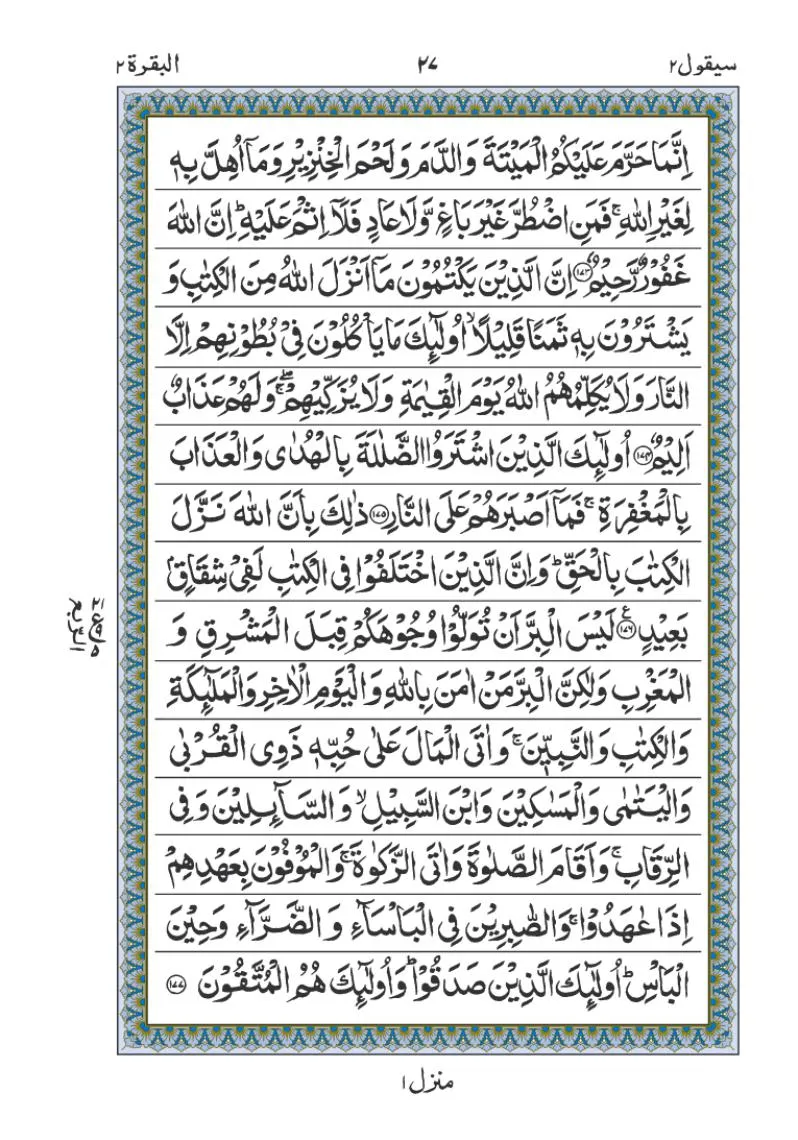 سيقول۲ ۲۷ البقرة۲
اِنَّمَا حَرَّمَ عَلَيْكُمُ الْمَيْتَةَ وَالدَّمَ وَلَحْمَ الْخِنْزِيْرِ وَمَاۤ اُهِلَّ بِهٖ
لِغَيْرِ اللّٰهِ ۚ فَمَنِ اضْطُرَّ غَيْرَ بَاغٍ وَّلَا عَادٍ فَلَاۤ اِثْمَ عَلَيْهِ ؕ اِنَّ اللّٰهَ
غَفُوْرٌ رَّحِيْمٌ ﴿۱۷۳﴾ اِنَّ الَّذِيْنَ يَكْتُمُوْنَ مَاۤ اَنْزَلَ اللّٰهُ مِنَ الْكِتٰبِ وَ
يَشْتَرُوْنَ بِهٖ ثَمَنًا قَلِيْلًا ۙ اُولٰٓئِكَ مَا يَاْكُلُوْنَ فِيْ بُطُوْنِهِمْ اِلَّا
النَّارَ وَلَا يُكَلِّمُهُمُ اللّٰهُ يَوْمَ الْقِيٰمَةِ وَلَا يُزَكِّيْهِمْ ۖۚ وَلَهُمْ عَذَابٌ
اَلِيْمٌ ﴿۱۷۴﴾ اُولٰٓئِكَ الَّذِيْنَ اشْتَرَوُا الضَّلٰلَةَ بِالْهُدٰى وَالْعَذَابَ
بِالْمَغْفِرَةِ ۚ فَمَاۤ اَصْبَرَهُمْ عَلَى النَّارِ ﴿۱۷۵﴾ ذٰلِكَ بِاَنَّ اللّٰهَ نَزَّلَ
الْكِتٰبَ بِالْحَقِّ ؕ وَاِنَّ الَّذِيْنَ اخْتَلَفُوْا فِى الْكِتٰبِ لَفِيْ شِقَاقٍۭ
بَعِيْدٍ ﴿۱۷۶﴾ ع لَيْسَ الْبِرَّ اَنْ تُوَلُّوْا وُجُوْهَكُمْ قِبَلَ الْمَشْرِقِ وَ
الْمَغْرِبِ وَلٰكِنَّ الْبِرَّ مَنْ اٰمَنَ بِاللّٰهِ وَالْيَوْمِ الْاٰخِرِ وَالْمَلٰٓئِكَةِ
وَالْكِتٰبِ وَالنَّبِيّٖنَ ۚ وَاٰتَى الْمَالَ عَلٰى حُبِّهٖ ذَوِى الْقُرْبٰى
وَالْيَتٰمٰى وَالْمَسٰكِيْنَ وَابْنَ السَّبِيْلِ ۙ وَالسَّآئِلِيْنَ وَفِى
الرِّقَابِ ۚ وَاَقَامَ الصَّلٰوةَ وَاٰتَى الزَّكٰوةَ ۚ وَالْمُوْفُوْنَ بِعَهْدِهِمْ
اِذَا عٰهَدُوْا ۚ وَالصّٰبِرِيْنَ فِى الْبَاْسَآءِ وَالضَّرَّآءِ وَحِيْنَ
الْبَاْسِ ؕ اُولٰٓئِكَ الَّذِيْنَ صَدَقُوْا ؕ وَاُولٰٓئِكَ هُمُ الْمُتَّقُوْنَ ﴿۱۷۷﴾
الربع
منزل۱